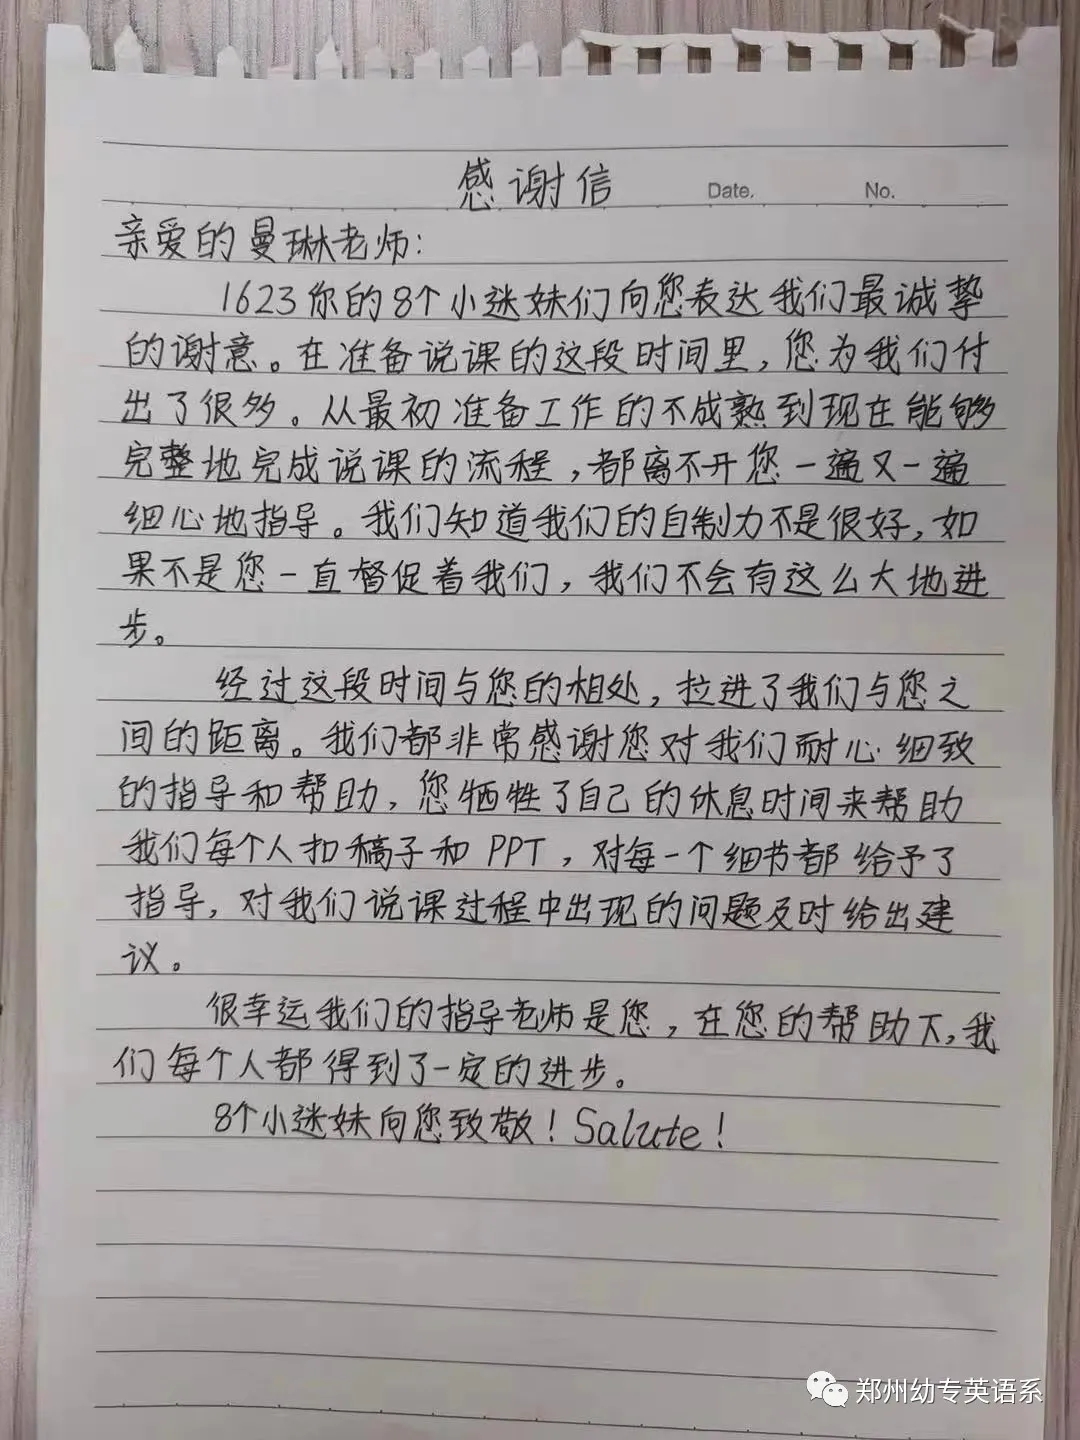 感谢信 Date. No.
亲爱的曼琳老师：
1623你的8个小迷妹们向您表达我们最诚挚
的谢意。在准备说课的这段时间里，您为我们付
出了很多。从最初准备工作的不成熟到现在能够
完整地完成说课的流程，都离不开您一遍又一遍
细心地指导。我们知道我们的自制力不是很好，如
果不是您一直督促着我们，我们不会有这么大地进
步。
经过这段时间与您的相处，拉进了我们与您之
间的距离。我们都非常感谢您对我们耐心细致
的指导和帮助，您牺牲了自己的休息时间来帮助
我们每个人扣稿子和PPT，对每一个细节都给予了
指导，对我们说课过程中出现的问题及时给出建
议。
很幸运我们的指导老师是您，在您的帮助下，我
们每个人都得到了一定的进步。
8个小迷妹向您致敬！Salute！
郑州幼专英语系